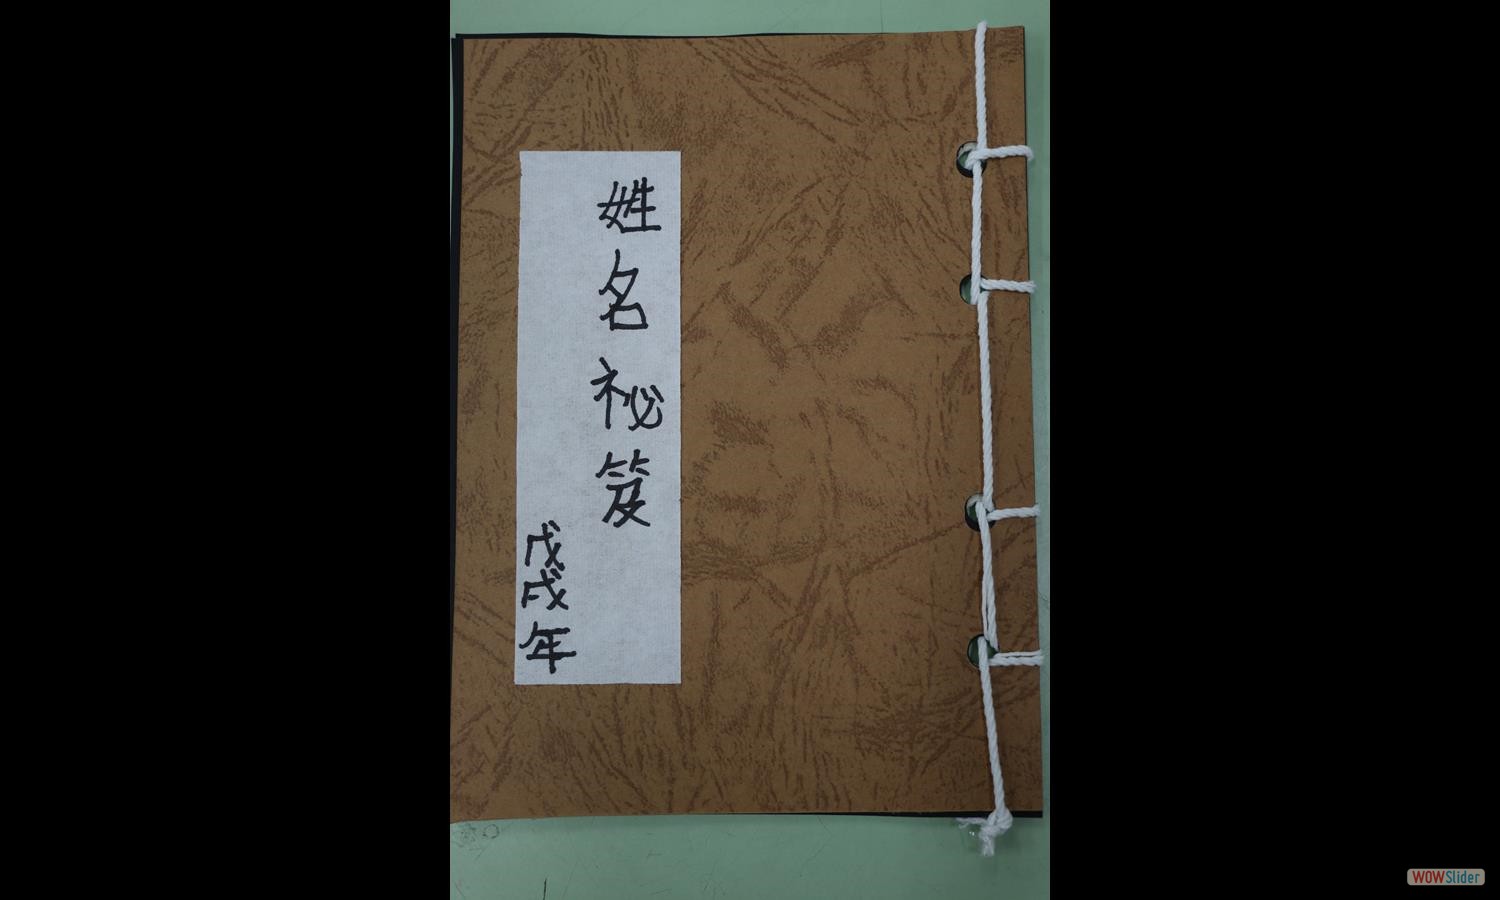 姓名祕笈
戊戌年
WOWSlider